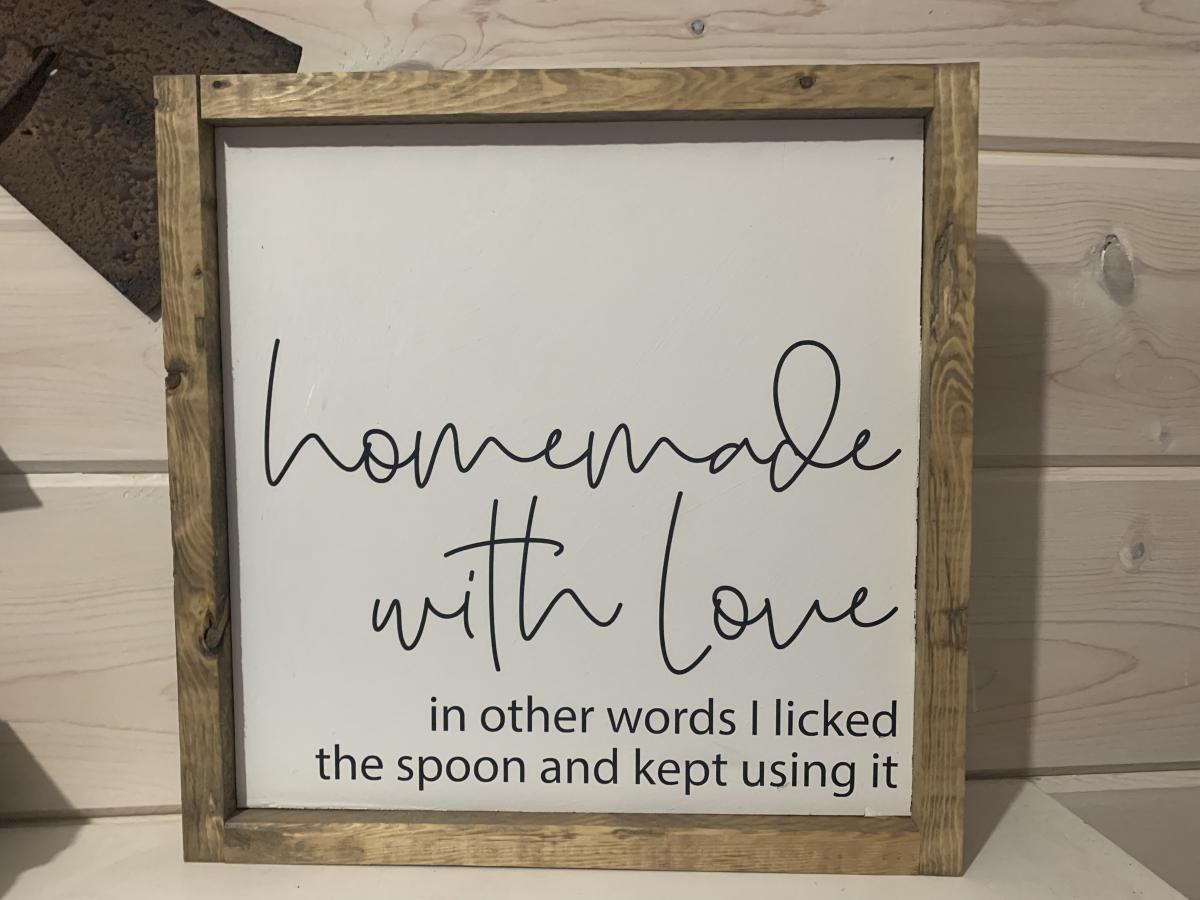 homemade
with love
in other words I licked
the spoon and kept using it